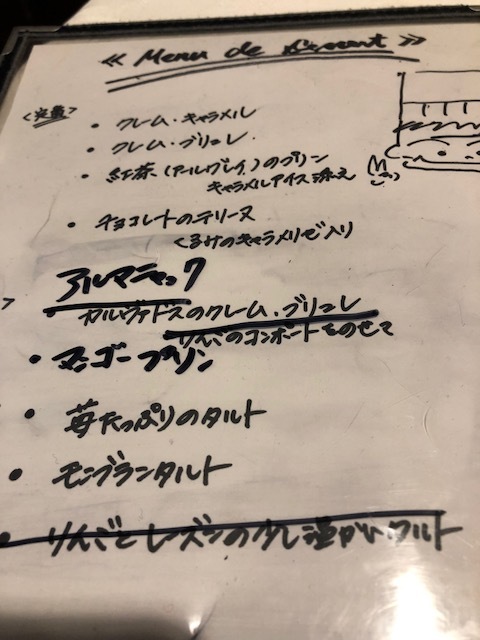 ≪ Menu de Dessert ≫
<定番>
・クレム・キャラメル
・クレム・ブリュレ
・紅茶(アールグレイ)のプリン
キャラメルアイス添え
・チョコレートのテリーヌ
くるみのキャラメリゼ入り
アルマニャック
・カルヴァドスのクレーム・ブリュレ
りんごのコンポートをのせて
・マンゴープリン
・苺たっぷりのタルト
・モンブランタルト
・りんごとレーズンの少し温かいタルト